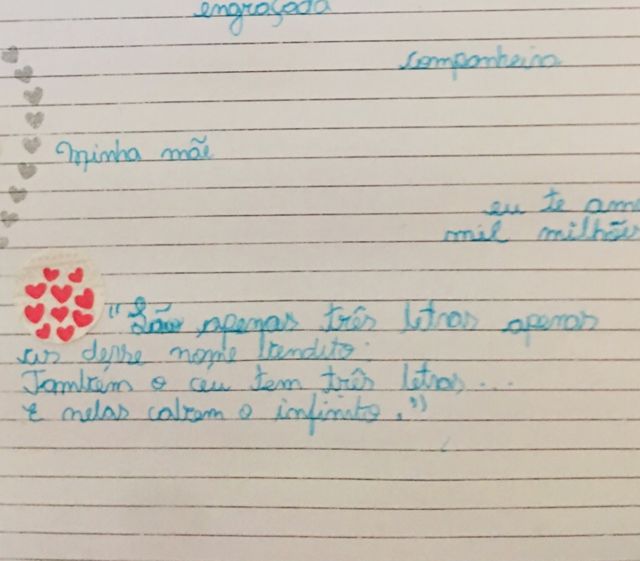 engraçada
companheira
Minha mãe
eu te amo
mil milhões
"São apenas três letras apenas
as desse nome bendito.
Também o ceu tem três letras...
E nelas cabem o infinito."